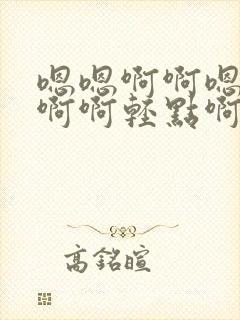 嗯嗯啊啊嗯
啊啊轻點啊
高銘暄